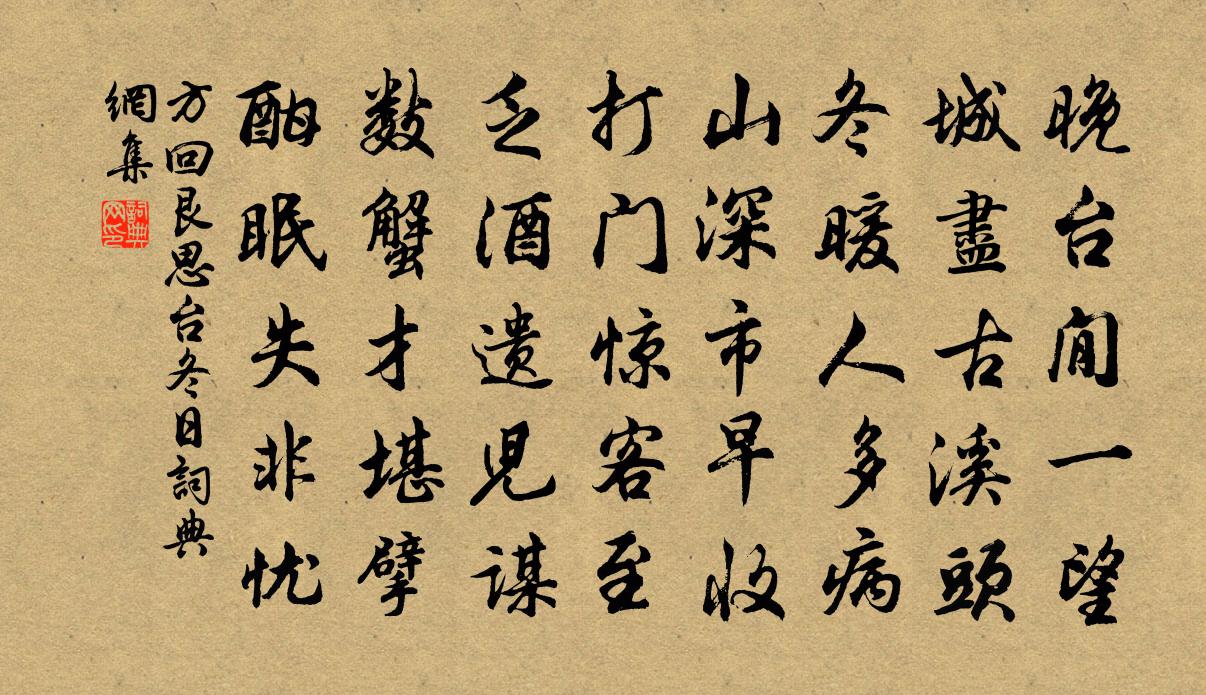 晚台閒一望
城盡古溪頭
冬暖人多病
山深市早收
打门惊客至
乏酒遗児谋
数蟹才堪擘
酣眠失非忧
方回艮思台冬日詞典
網集
詞典
网印